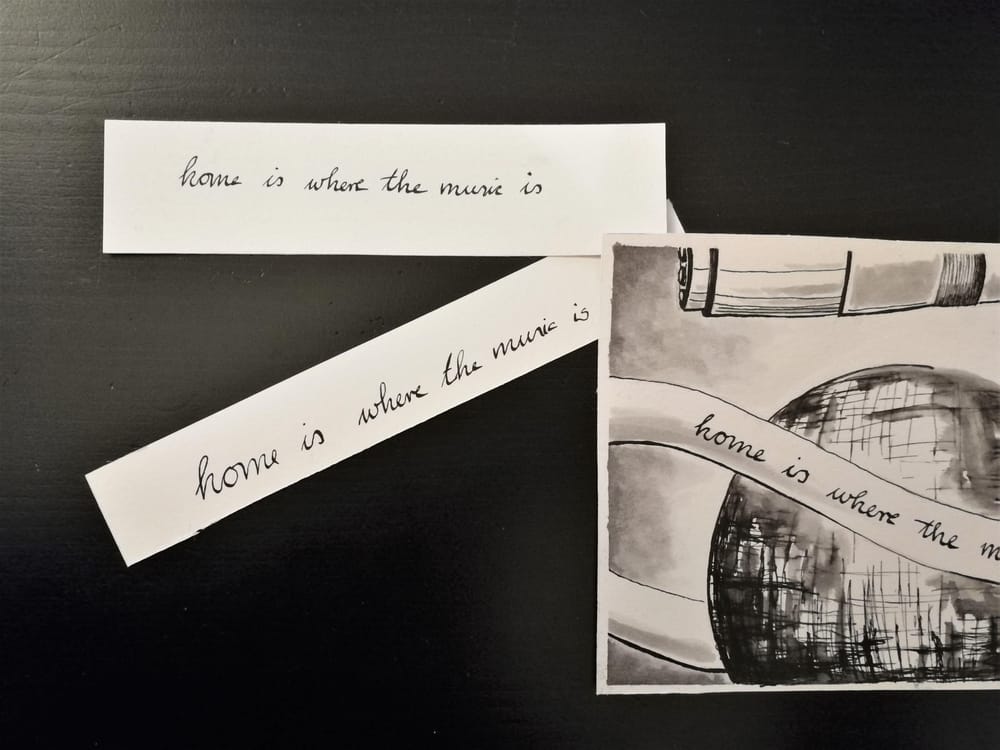 home is where the music is
home is where the music is
home is where the m